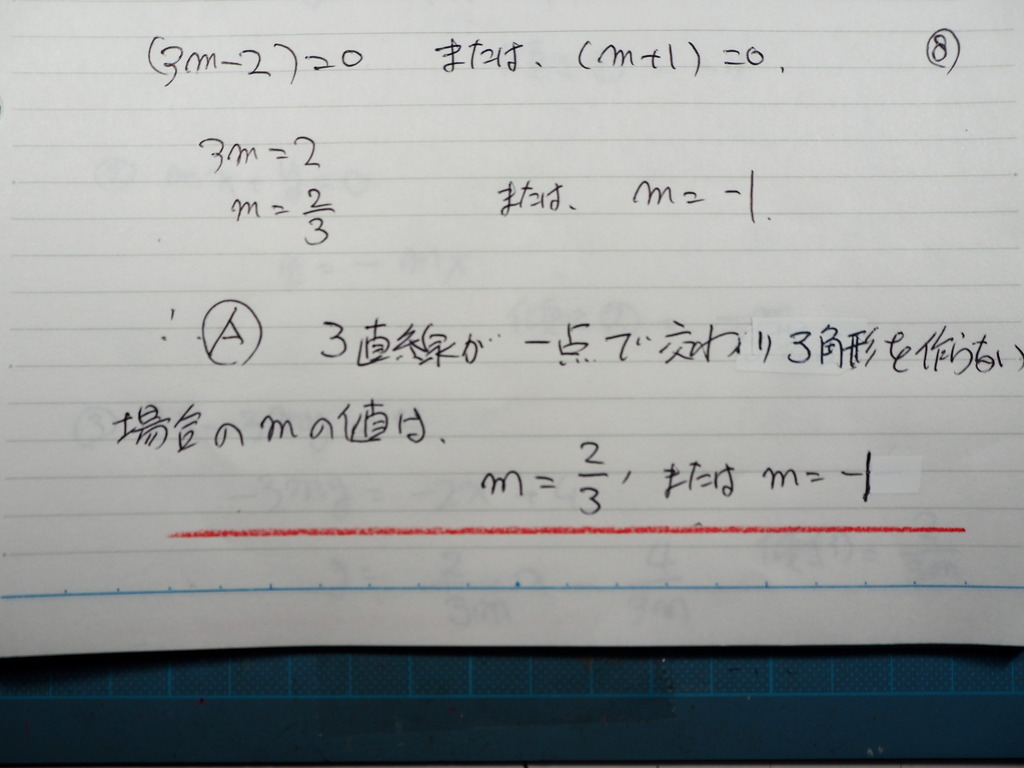 (3m-2)=0 または、(m+1)=0. ⑧
3m=2
m=2/3 または、 m=-1.
∴ Ⓐ 3直線が一点で交わり3角形を作らない
場合のmの値は、
m=2/3, または m=-1